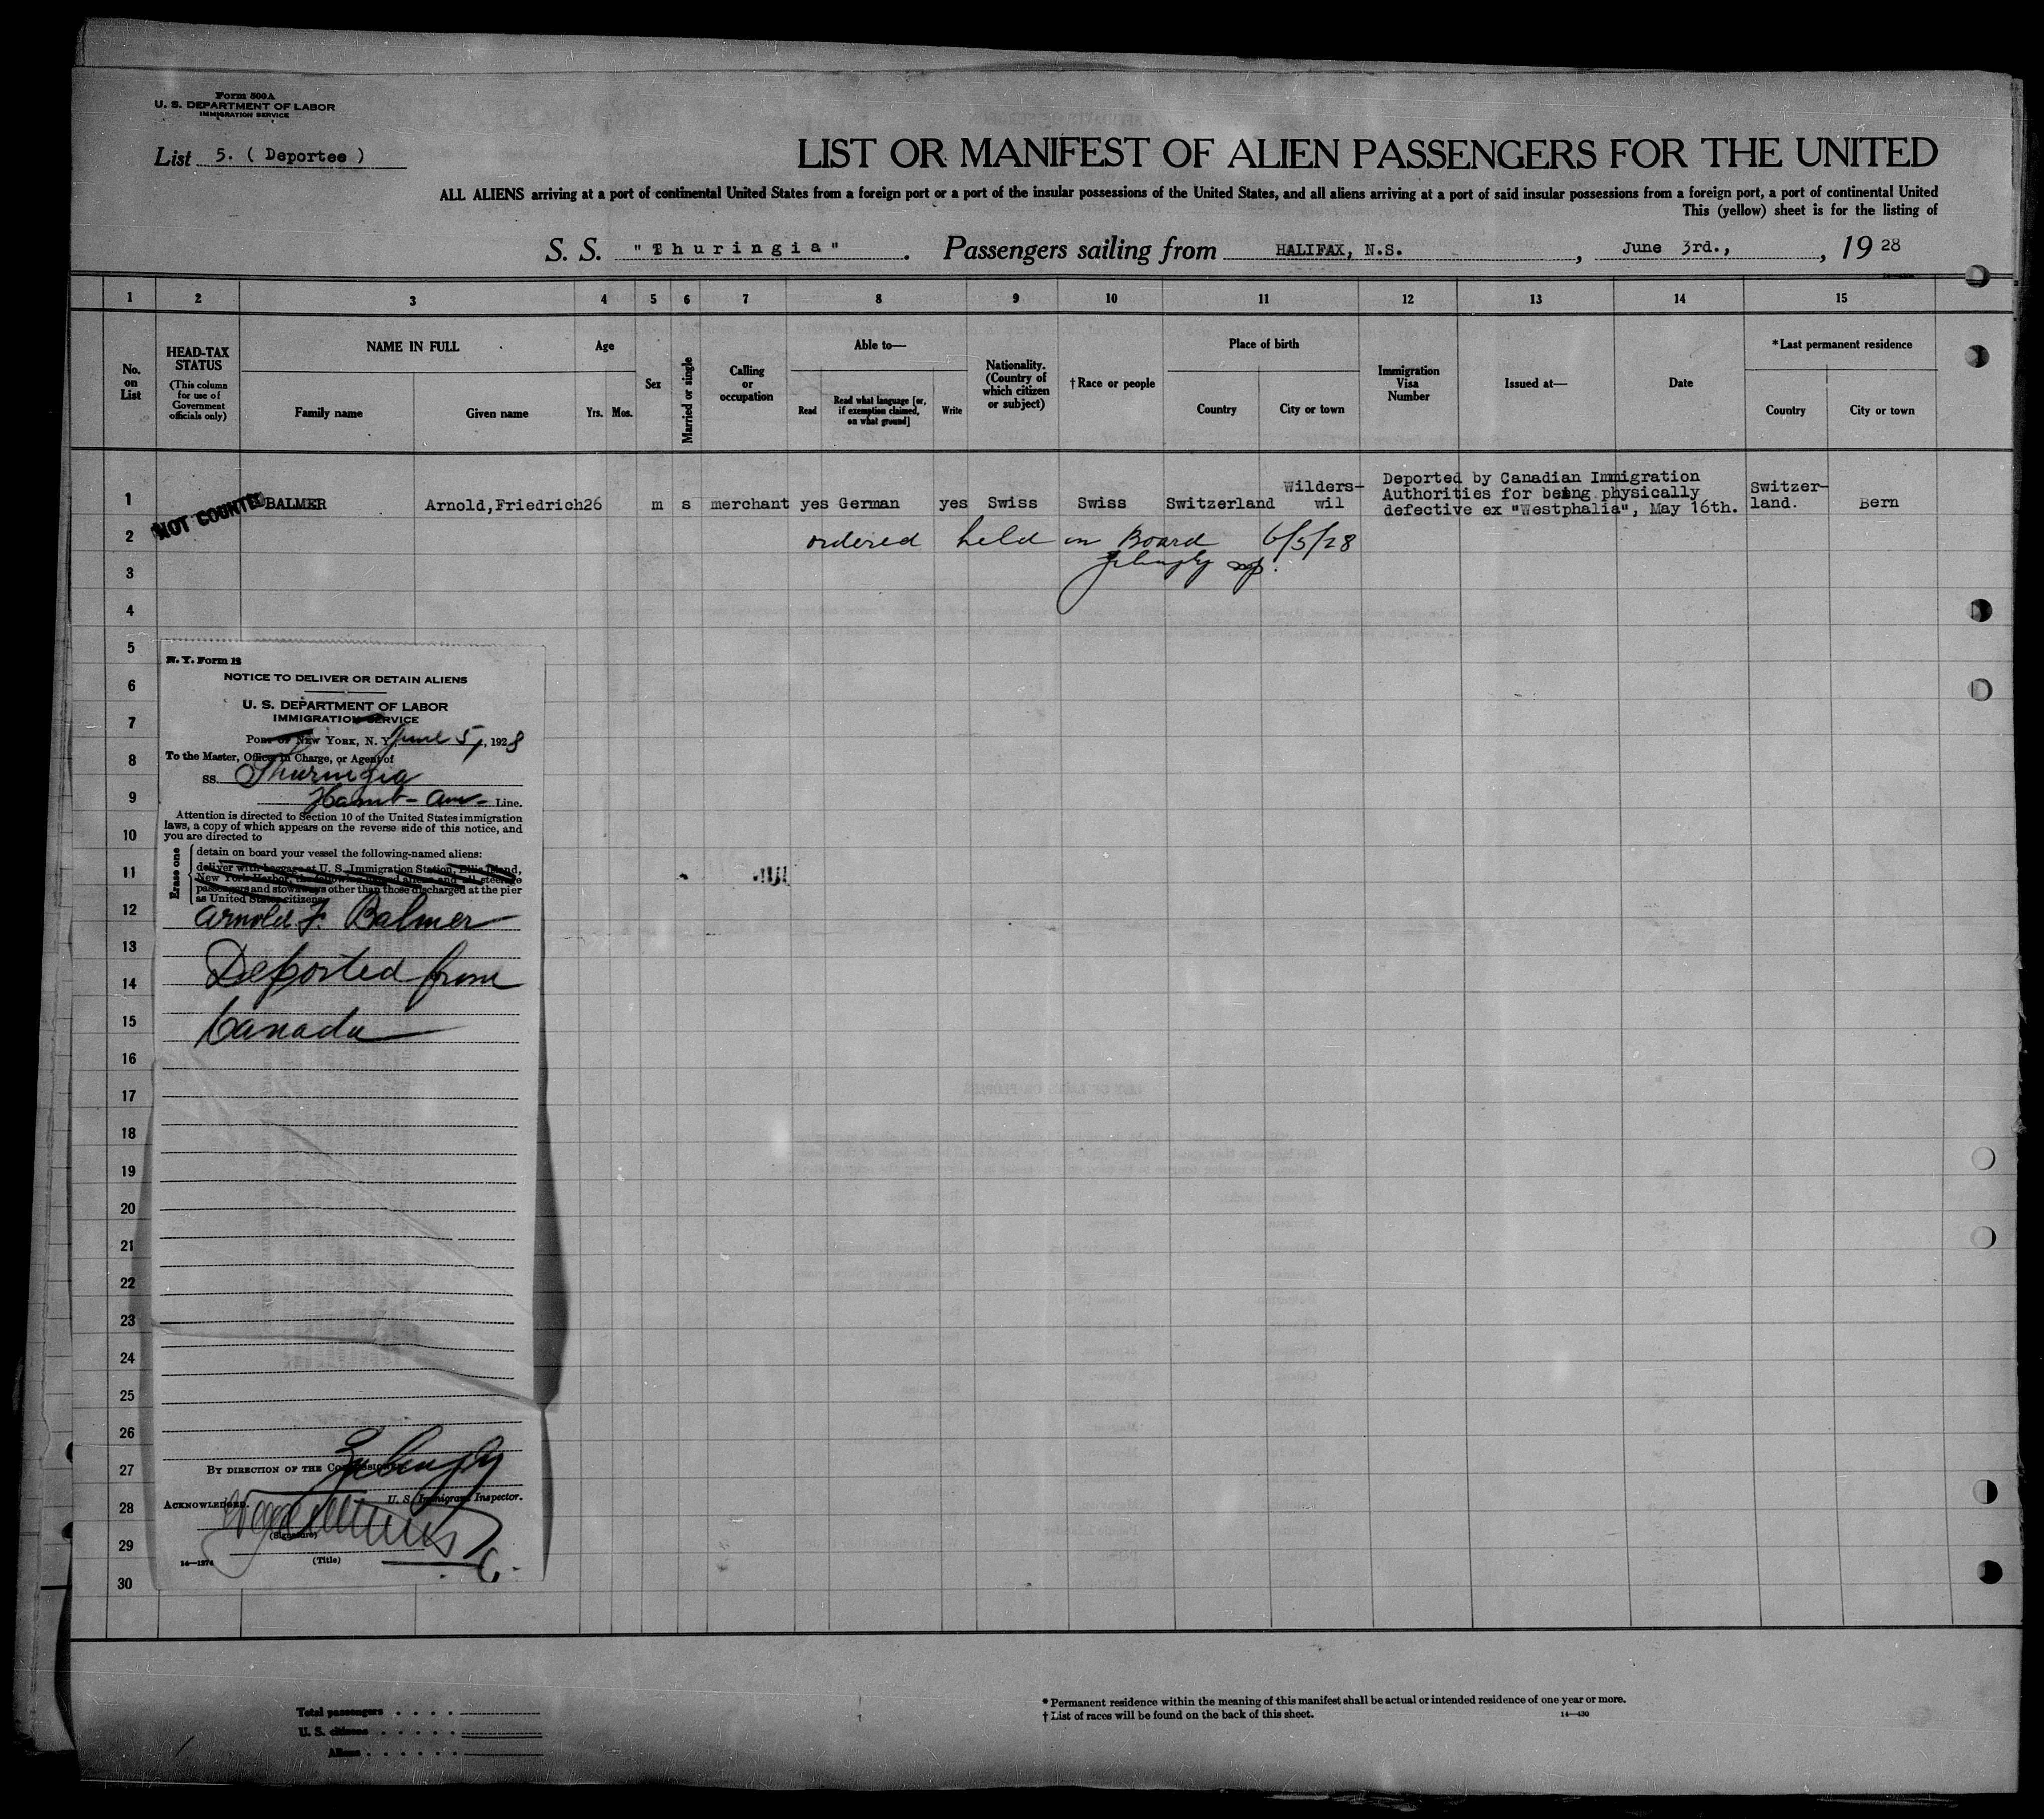 Form 500A
U. S. DEPARTMENT OF LABOR
IMMIGRATION SERVICE
List 5. ( Deportee )
LIST OR MANIFEST OF ALIEN PASSENGERS FOR THE UNITED
ALL ALIENS arriving at a port of continental United States from a foreign port or a port of the insular possessions of the United States, and all aliens arriving at a port of said insular possessions from a foreign port, a port of continental United
This (yellow) sheet is for the listing of
S. S. "Thuringia". Passengers sailing from HALIFAX, N.S., June 3rd., , 1928
1 2 3 4 5 6 7 8 9 10 11 12 13 14 15
No. on List
HEAD-TAX STATUS
(This column for use of Government officials only)
NAME IN FULL
Family name
Given name
Age
Yrs. Mos.
Sex
Married or single
Calling or occupation
Able to—
Read
Read what language [or, if exemption claimed, on what ground]
Write
Nationality. (Country of which citizen or subject)
†Race or people
Place of birth
Country
City or town
Immigration Visa Number
Issued at—
Date
*Last permanent residence
Country
City or town
1 NOT COUNTED BALMER Arnold,Friedrich 26 m s merchant yes German yes Swiss Swiss Switzerland Wilders-wil
Deported by Canadian Immigration
Authorities for being physically
defective ex "Westphalia", May 16th.
Switzer-
land.
Bern
2 ordered held on Board 6/5/28
3
4
5
6
7
8
9
10
11
12
13
14
15
16
17
18
19
20
21
22
23
24
25
26
27
28
29
30
N. Y. Form 12
NOTICE TO DELIVER OR DETAIN ALIENS
U. S. DEPARTMENT OF LABOR
IMMIGRATION SERVICE
PORT OF NEW YORK, N. Y. June 5, 1928
To the Master, Officer in Charge, or Agent of
SS. Thuringia
Hamb-Am- Line.
Attention is directed to Section 10 of the United States immigration
laws, a copy of which appears on the reverse side of this notice, and
you are directed to
Erase one
detain on board your vessel the following-named aliens:
deliver with baggage at U. S. Immigration Station, Ellis Island,
New York Harbor, the following-named aliens and all steerage
passengers and stowaways other than those discharged at the pier
as United States citizens:
Arnold F. Balmer
Deported from
Canada
BY DIRECTION OF THE COMMISSIONER:
U. S. Immigrant Inspector.
ACKNOWLEDGED.
(Signature)
(Title)
14—1274
Total passengers . . . .
U. S. citizens . . . . .
Aliens . . . . . .
* Permanent residence within the meaning of this manifest shall be actual or intended residence of one year or more.
† List of races will be found on the back of this sheet.
14—430